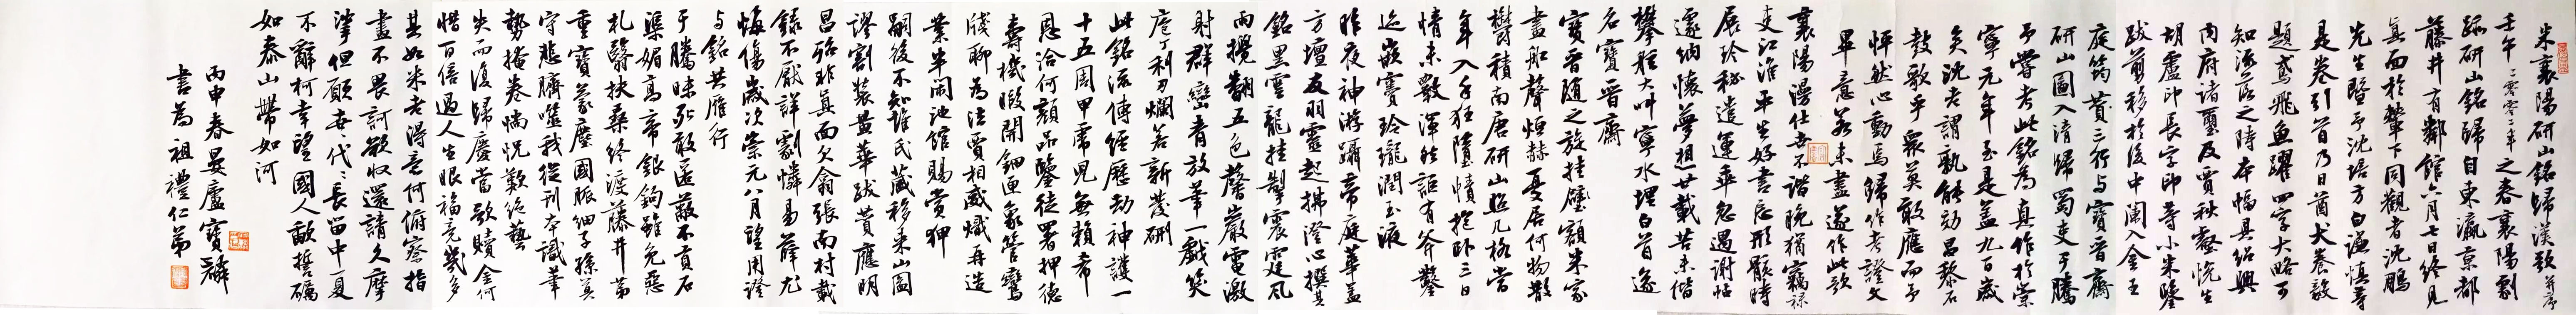 米襄陽研山銘歸漢歌 并序
壬午 二零零二年 之春襄陽劇
跡研山銘歸自東瀛京都
藤井有鄰館六月七日終見
真面於輦下同觀者沈鵬
先生暨予沈培方白謙慎等
是卷引首乃日酋犬養毅
題鳶飛魚躍四字大略可
知流落之時本幅具紹興
內府諸璽及賈秋壑悅生
胡盧印長字印等小米鑒
跋剪移於後中闌入金王
庭筠贊三行与寶晉齋
研山圖入清歸蜀吏于騰
予嘗考此銘為真作於崇
寧元年至是蓋九百歲
矣沈老謂孰能効昌黎石
鼓歌乎眾莫敢應而予
怦然心動焉歸作考證文
畢意若未盡遂作此歌
襄陽漫仕老不諧晚猶竊祿
走江淮平生好書忘形骸時
展珍秘遣運乖忽遇謝帖
遂納懷夢想廿載苦未偕
攀桅大叫寧水埋白首遂
名寶晉齋
寶晉隨之旋挂壁額米家
畫船聲烜赫爰居何物散
鬱積南唐研山照几格嘗
年入手狂墮幘抱卧三日
情未斁渾然詎有斧鑿
迹嵌竇玲瓏潤玉液
昨夜神游躡帝庭華蓋
方壇友羽靈起拂澄心撰其
銘黑雲龍挂掣震霆風
雨攪翻五色磬巖電激
射群巒青放筆一戲笑
庖丁利刃爛若新發硎
此銘流傳經歷劫神護一
十五周甲虎兒無賴希
恩洽何顏品鑒徒署押德
壽機暇開鈿匣象管鸞
牋聊為法賈相威熾再造
業半閒池館賜賞狎
嗣後不知誰氏藏移来山圖
謬割裝黃華跋贊應明
昌殆非真面欠翁張南村載
錄不厭詳劉憐易薛尤
悔傷歲次崇元八月望用證
与銘共雁行
于騰昧死敢匿蔽不貢石
渠媚高帝銀鉤雖免惡
札翳扶桑終渡藤井第
重寶蒙塵國脈細子孫莫
守悲臍噬我從刊本識筆
勢掩卷惝怳歎絕藝
失而復歸慶當歌贖金何
惜百倍過人生眼福竟幾多
其如米老得意何俯察指
畫不畏訶欲收還請久摩
挲但願世代〻長留中夏
不辭柯幸望國人敵誓礪
如泰山帶如河
丙申春晏廬寶麟
書為祖禮仁弟